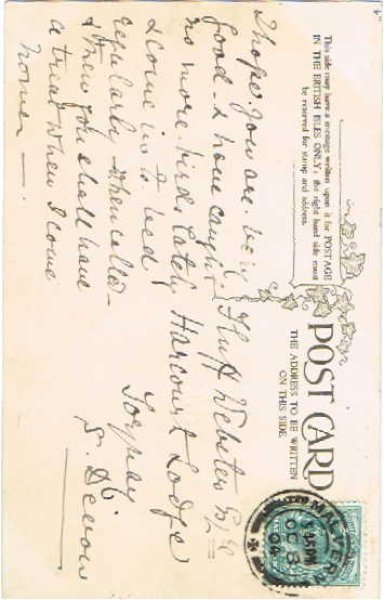 This side may have a message written upon it for POSTAGE
IN THE BRITISH ISLES ONLY; the right hand side must
be reserved for stamp and address.
POST CARD
THE ADDRESS TO BE WRITTEN
ON THIS SIDE.
I hope you are being
good - & have caught
no more birds lately
& come in to bed
regularly when called -
& then you shall have
a treat when I come
home -
Fluff Webster Esq
Harcourt Lodge
Torquay
S. Devon
MALVERN
PM
OC 8
04